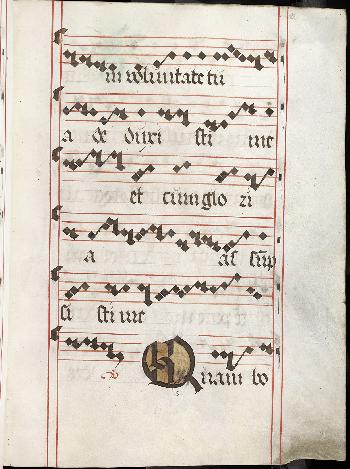 in voluntate tu
a de duxi sti me
et cum glo ri
a as sūp
si sti me
Quam bo